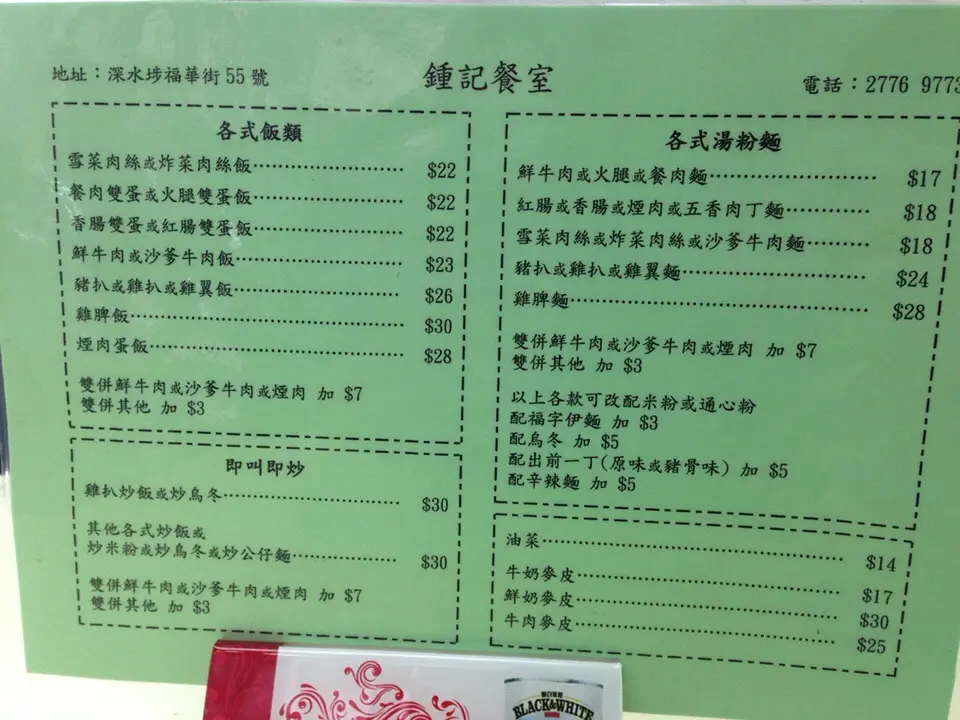 地址：深水埗福華街55號
鍾記餐室
電話：2776 9773
各式飯類
雪菜肉絲或炸菜肉絲飯 $22
餐肉雙蛋或火腿雙蛋飯 $22
香腸雙蛋或紅腸雙蛋飯 $22
鮮牛肉或沙爹牛肉飯 $23
豬扒或雞扒或雞翼飯 $26
雞脾飯 $30
煙肉蛋飯 $28
雙併鮮牛肉或沙爹牛肉或煙肉 加 $7
雙併其他 加 $3
即叫即炒
雞扒炒飯或炒烏冬 $30
其他各式炒飯或
炒米粉或炒烏冬或炒公仔麵 $30
雙併鮮牛肉或沙爹牛肉或煙肉 加 $7
雙併其他 加 $3
各式湯粉麵
鮮牛肉或火腿或餐肉麵 $17
紅腸或香腸或煙肉或五香肉丁麵 $18
雪菜肉絲或炸菜肉絲或沙爹牛肉麵 $18
豬扒或雞扒或雞翼麵 $24
雞脾麵 $28
雙併鮮牛肉或沙爹牛肉或煙肉 加 $7
雙併其他 加 $3
以上各款可改配米粉或通心粉
配福字伊麵 加 $3
配烏冬 加 $5
配出前一丁(原味或豬骨味) 加 $5
配辛辣麵 加 $5
油菜 $14
牛奶麥皮 $17
鮮奶麥皮 $30
牛肉麥皮 $25
BLACK&WHITE